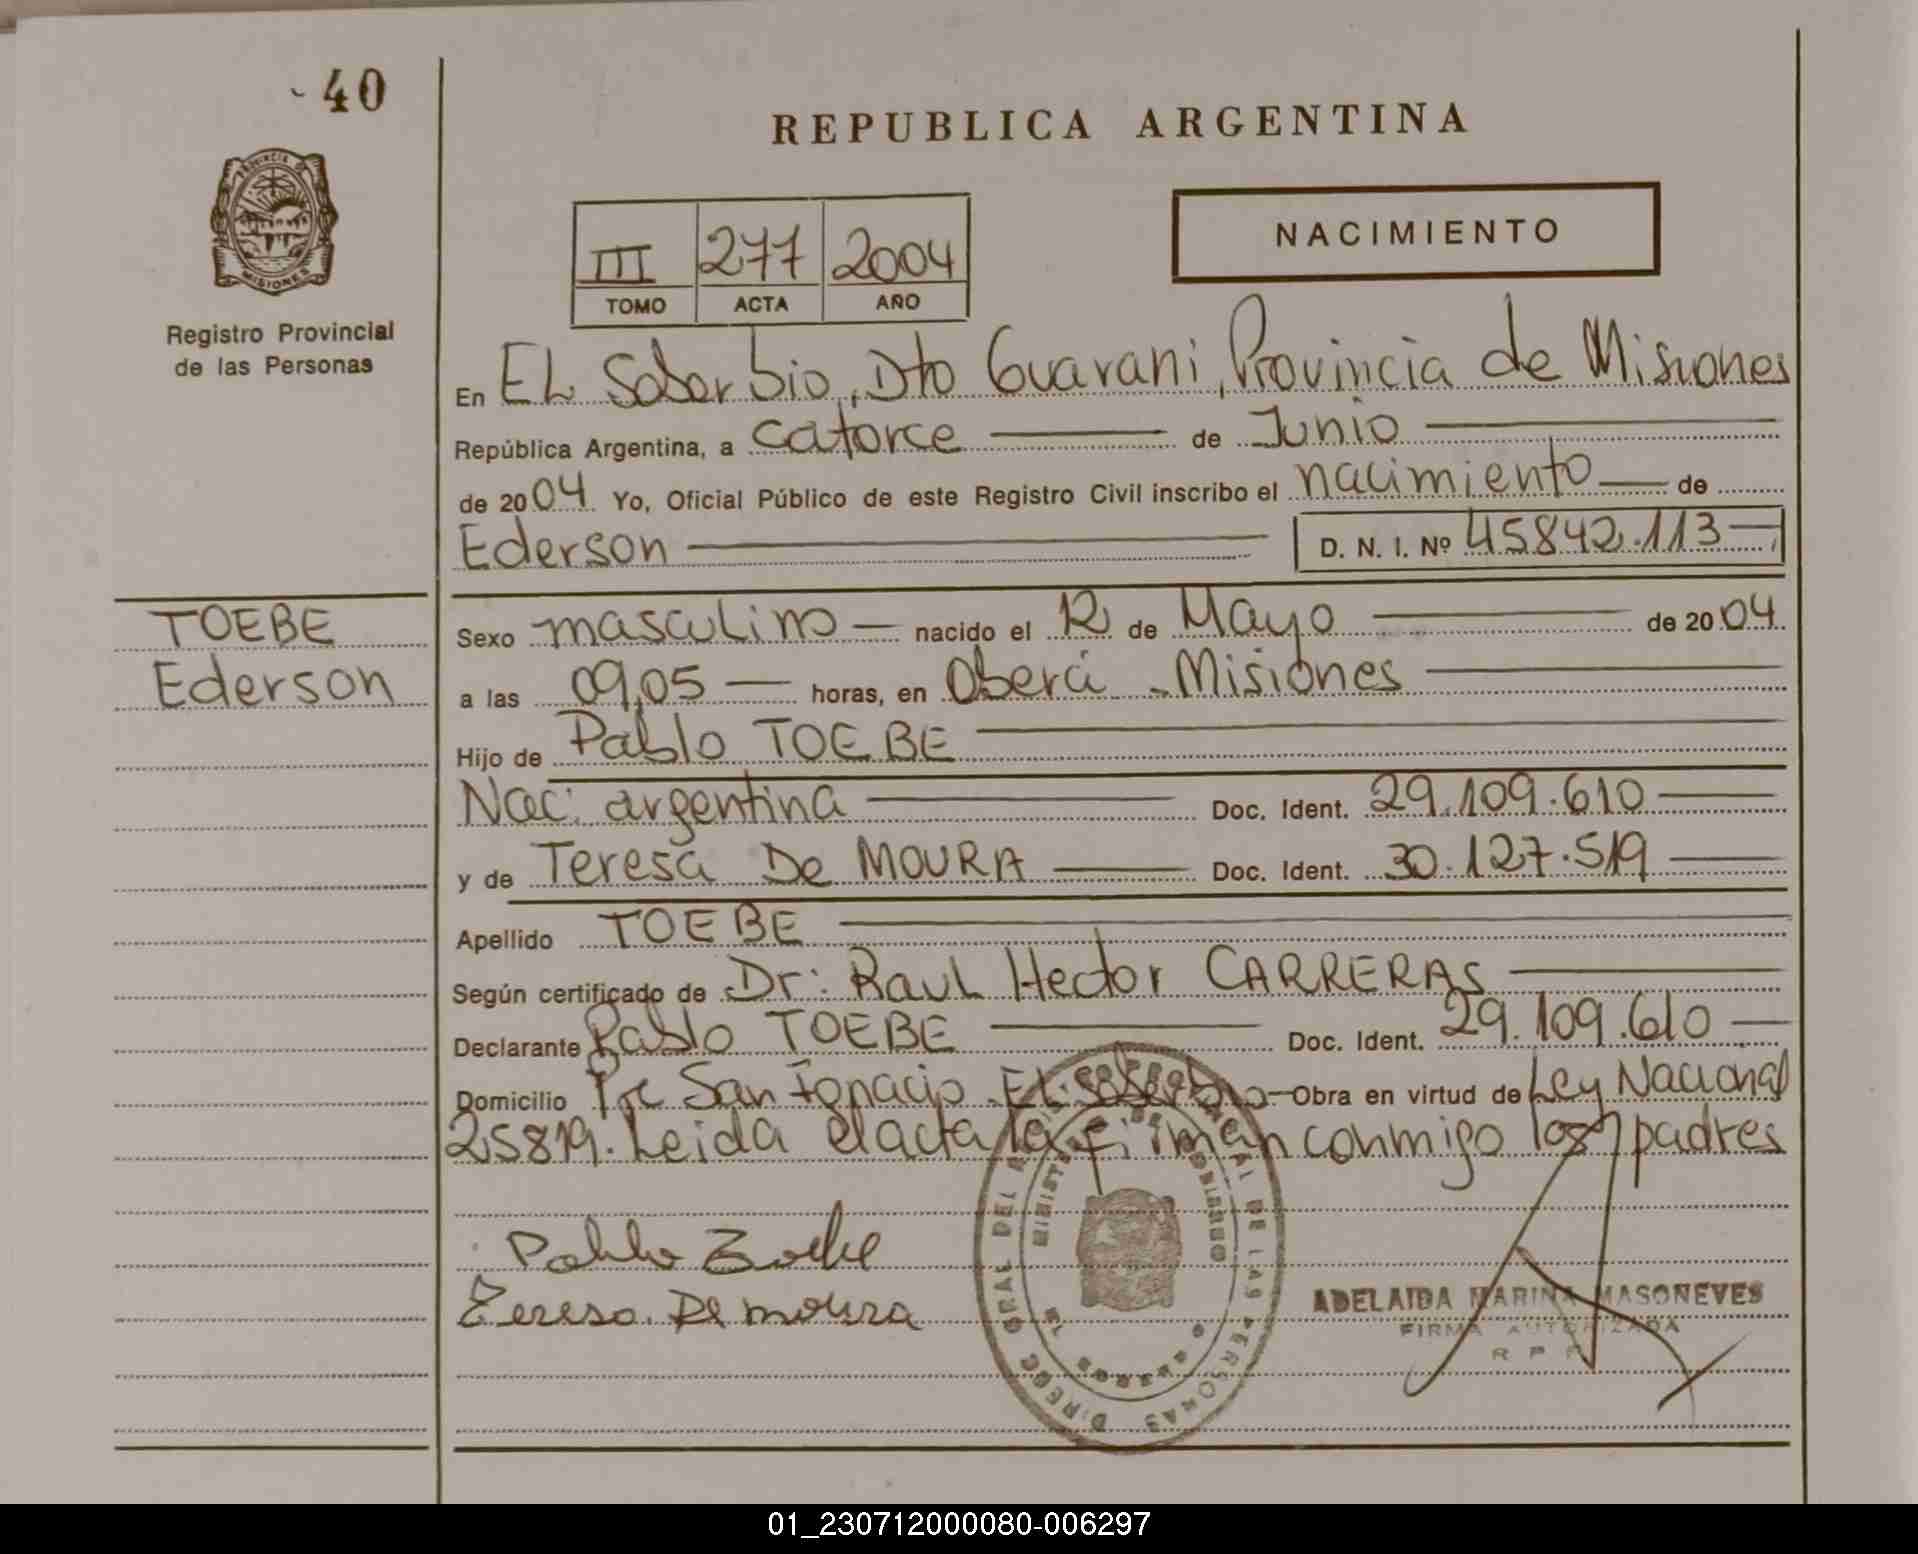 40
PROVINCIA DE MISIONES
Registro Provincial
de las Personas
REPUBLICA ARGENTINA
III 277 2004
TOMO ACTA AÑO
NACIMIENTO
En EL Soberbio, Dto Guarani, Provincia de Misiones
República Argentina, a catorce de Junio
de 2004 Yo, Oficial Público de este Registro Civil inscribo el nacimiento de
Ederson D. N. I. Nº 45842.113
TOEBE
Ederson
Sexo masculino nacido el 12 de Mayo de 2004
a las 09,05 horas, en Oberá - Misiones
Hijo de Pablo TOEBE
Nac: argentina Doc. Ident. 29.109.610
y de Teresa De MOURA Doc. Ident. 30.127.519
Apellido TOEBE
Según certificado de Dr: Raul Hector CARRERAS
Declarante Pablo TOEBE Doc. Ident. 29.109.610
Domicilio San Ignacio El Soberbio Obra en virtud de Ley Nacional
25819. Leida el acta la firman conmigo los padres
Pablo Toebe
Teresa De moura
DIREC GRAL DEL REGISTRO PROVINCIAL DE LAS PERSONAS
MINISTERIO DE GOBIERNO
ADELAIDA MARINA MASONEVES
FIRMA AUTORIZADA
R P P
01_230712000080-006297